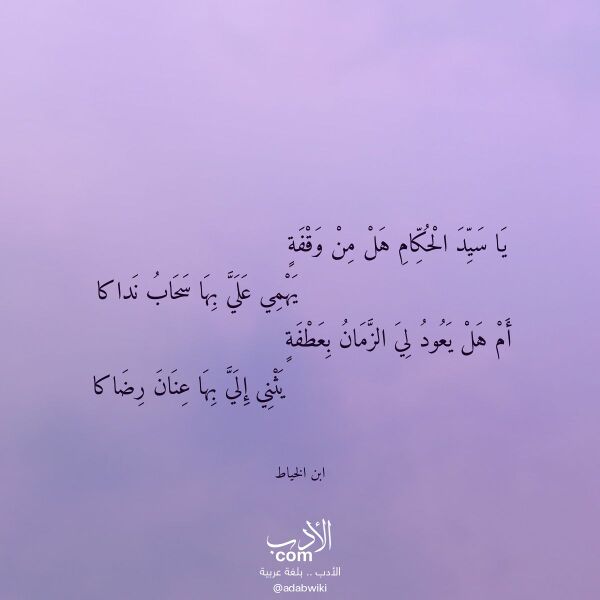 يَا سَيِّدَ الْحُكَّامِ هَلْ مِنْ وَقْفَةٍ
يَهْمِي عَلَيَّ بِهَا سَحَابُ نَداكا
أَمْ هَلْ يَعُودُ لِيَ الزَّمَانُ بِعَطْفَةٍ
يَثْنِي إِلَيَّ بِهَا عِنَانَ رِضَاكا
ابن الخياط
الأدب
.com
الأدب .. بلغة عربية
@adabwiki